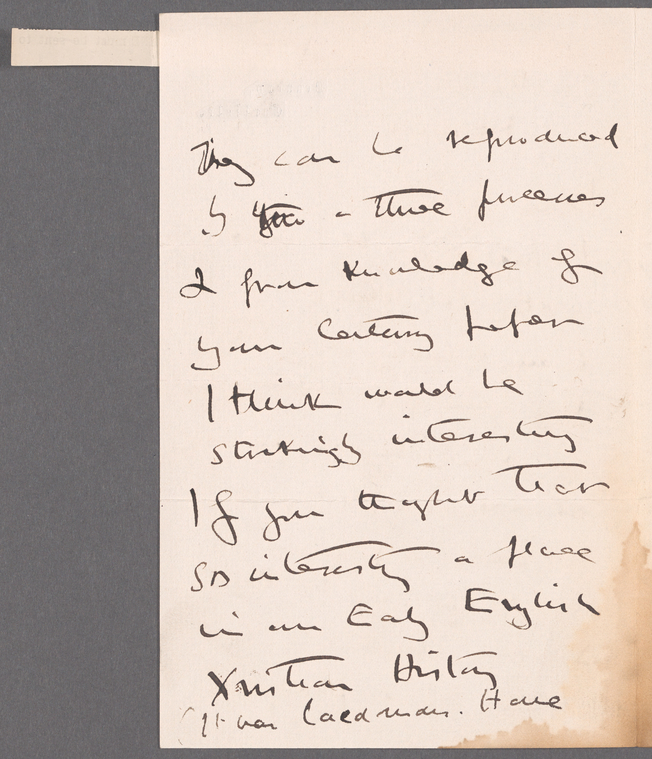 They can be reproduced
by two or three processes
& from knowledge of
your Century
I think would be
strikingly interesting
If you thought that
so interesting a place
in our Early English
Xristian History
(It was Caedmon's Home